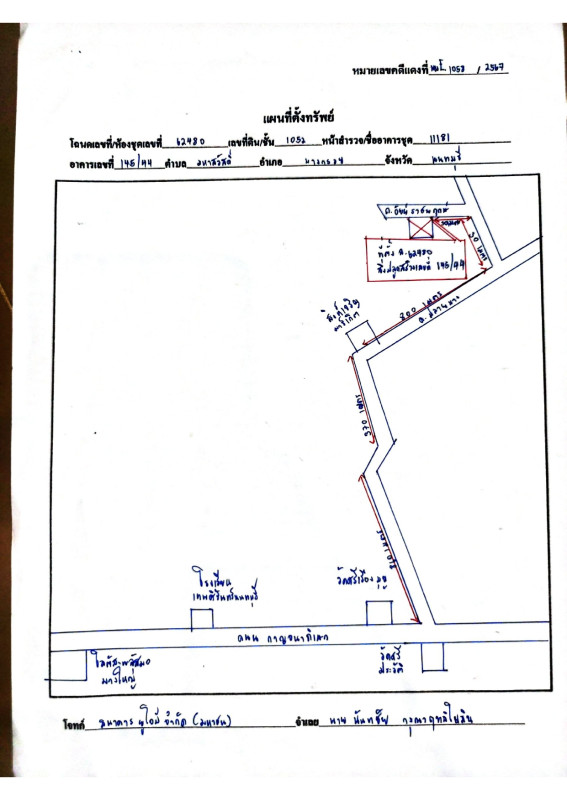 หมายเลขคดีแดงที่ ผบE. 1053 / 2567
แผนที่ตั้งทรัพย์
โฉนดเลขที่/ห้องชุดเลขที่ 62480 เลขที่ดิน/ชั้น 1052 หน้าสำรวจ/ชื่ออาคารชุด 11181
อาคารเลขที่ 145/44 ตำบล มหาสวัสดิ์ อำเภอ บางกรวย จังหวัด นนทบุรี
ถ.
ที่ตั้ง ฉ.62480
สิ่งปลูกสร้างเลขที่ 145/44
50 เมตร
800 เมตร
370 เมตร
โรงเรียน
เทพศิรินทร์นนทบุรี
วัดศรีเรืองบุญ
ถนน กาญจนาภิเษก
โลตัส-พลัสมอ
บางใหญ่
วัดศรี
ประวัติ
โจทก์ ธนาคาร ยูโอบี จำกัด (มหาชน) จำเลย นาย